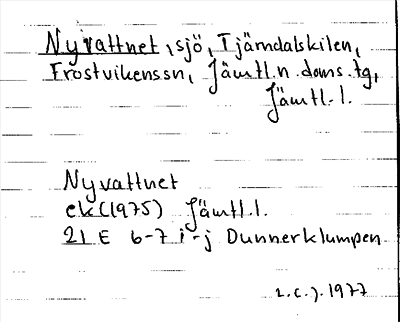 Nyvattnet, sjö, Tjärndalskilen,
Frostvikens sn, Jämtl. n. doms. tg,
Jämtl. l.
Nyvattnet
ek (1975) Jämtl. l.
21 E 6-7 i-j Dunnerklumpen
1977